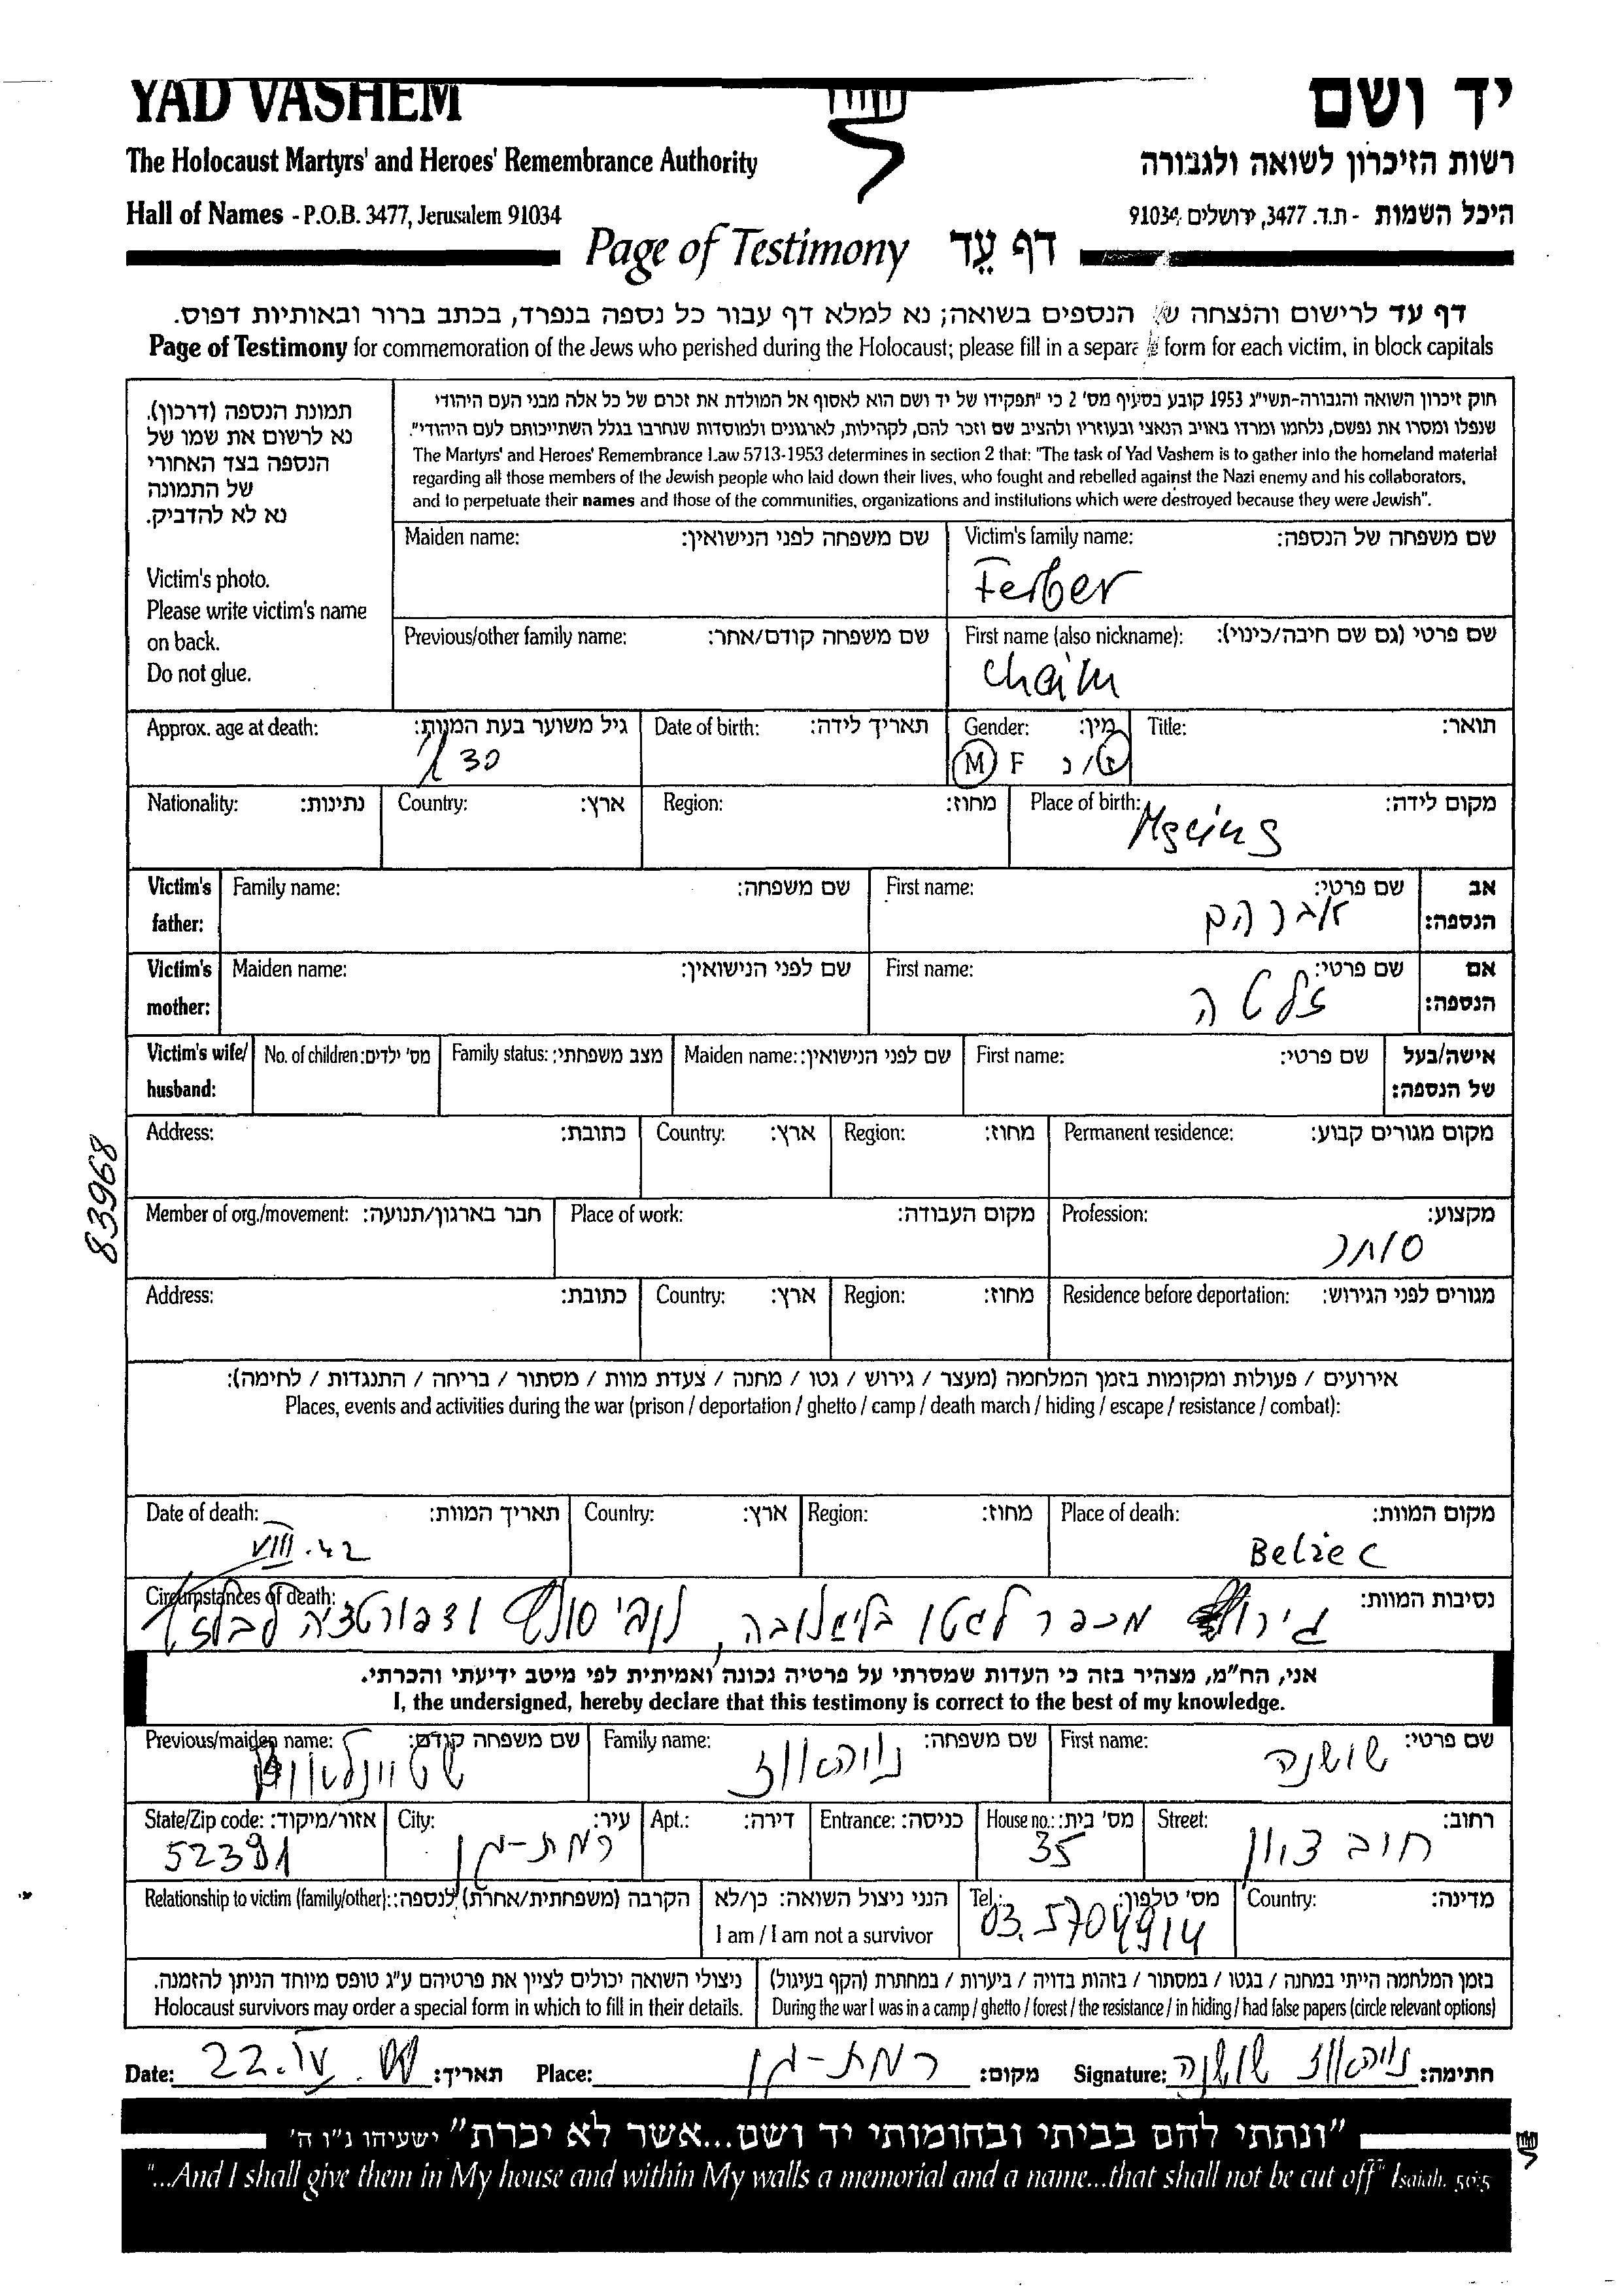 YAD VASHEM
יד ושם
The Holocaust Martyrs' and Heroes' Remembrance Authority
רשות הזיכרון לשואה ולגבורה
Hall of Names - P.O.B. 3477, Jerusalem 91034
היכל השמות - ת.ד. 3477, ירושלים 91034
Page of Testimony דף עֵד
דף עד לרישום והנצחה של הנספים בשואה; נא למלא דף עבור כל נספה בנפרד, בכתב ברור ובאותיות דפוס.
Page of Testimony for commemoration of the Jews who perished during the Holocaust; please fill in a separate form for each victim, in block capitals
תמונת הנספה (דרכון).
נא לרשום את שמו של
הנספה בצד האחורי
של התמונה
נא לא להדביק.
Victim's photo.
Please write victim's name
on back.
Do not glue.
חוק זיכרון השואה והגבורה-תשי"ג 1953 קובע בסעיף מס' 2 כי "תפקידו של יד ושם הוא לאסוף אל המולדת את זכרם של כל אלה מבני העם היהודי
שנפלו ומסרו את נפשם, נלחמו ומרדו באויב הנאצי ובעוזריו ולהציב שם וזכר להם, לקהילות, לארגונים ולמוסדות שנחרבו בגלל השתייכותם לעם היהודי".
The Martyrs' and Heroes' Remembrance Law 5713-1953 determines in section 2 that: "The task of Yad Vashem is to gather into the homeland material
regarding all those members of the Jewish people who laid down their lives, who fought and rebelled against the Nazi enemy and his collaborators,
and to perpetuate their names and those of the communities, organizations and institutions which were destroyed because they were Jewish".
Maiden name: שם משפחה לפני הנישואין:
Victim's family name: שם משפחה של הנספה:
Ferber
Previous/other family name: שם משפחה קודם/אחר:
First name (also nickname): שם פרטי (גם שם חיבה/כינוי):
Chaim
Approx. age at death: גיל משוער בעת המוות:
30
Date of birth: תאריך לידה:
Gender: מין:
M F ז/נ
Title: תואר:
Nationality: נתינות:
Country: ארץ:
Region: מחוז:
Place of birth: מקום לידה:
Victim's father: Family name: שם משפחה:
First name: שם פרטי: אב הנספה:
אברהם
Victim's mother: Maiden name: שם לפני הנישואין:
First name: שם פרטי: אם הנספה:
זלטה
Victim's wife/ husband: No. of children: מס' ילדים:
Family status: מצב משפחתי:
Maiden name: שם לפני הנישואין:
First name: שם פרטי: אישה/בעל של הנספה:
Address: כתובת:
Country: ארץ:
Region: מחוז:
Permanent residence: מקום מגורים קבוע:
83968
Member of org./movement: חבר בארגון/תנועה:
Place of work: מקום העבודה:
Profession: מקצוע:
סוחר
Address: כתובת:
Country: ארץ:
Region: מחוז:
Residence before deportation: מגורים לפני הגירוש:
אירועים / פעולות ומקומות בזמן המלחמה (מעצר / גירוש / גטו / מחנה / צעדת מוות / מסתור / בריחה / התנגדות / לחימה):
Places, events and activities during the war (prison / deportation / ghetto / camp / death march / hiding / escape / resistance / combat):
Date of death: תאריך המוות:
VIII.42
Country: ארץ:
Region: מחוז:
Place of death: מקום המוות:
Belzec
Circumstances of death: נסיבות המוות:
גירוש מכפר לגטו
אני, הח"מ, מצהיר בזה כי העדות שמסרתי על פרטיה נכונה ואמיתית לפי מיטב ידיעתי והכרתי.
I, the undersigned, hereby declare that this testimony is correct to the best of my knowledge.
Previous/maiden name: שם משפחה קודם:
Family name: שם משפחה:
נויהאוז
First name: שם פרטי:
שושנה
State/Zip code: אזור/מיקוד:
52391
City: עיר:
רמת-גן
Apt.: דירה:
Entrance: כניסה:
House no.: מס' בית:
35
Street: רחוב:
Relationship to victim (family/other): הקרבה (משפחתית/אחרת) לנספה:
הנני ניצול השואה: כן/לא
I am / I am not a survivor
Tel.: מס' טלפון:
03.5704914
Country: מדינה:
ניצולי השואה יכולים לציין את פרטיהם ע"ג טופס מיוחד הניתן להזמנה.
Holocaust survivors may order a special form in which to fill in their details.
בזמן המלחמה הייתי במחנה / בגטו / במסתור / בזהות בדויה / ביערות / במחתרת (הקף בעיגול)
During the war I was in a camp / ghetto / forest / the resistance / in hiding / had false papers (circle relevant options)
Date: 22.IV. תאריך:
Place: רמת-גן מקום:
Signature: נויהאוז שושנה חתימה:
"ונתתי להם בביתי ובחומותי יד ושם...אשר לא יכרת" ישעיהו נ"ו ה'
"...And I shall give them in My house and within My walls a memorial and a name...that shall not be cut off" Isaiah. 56:5